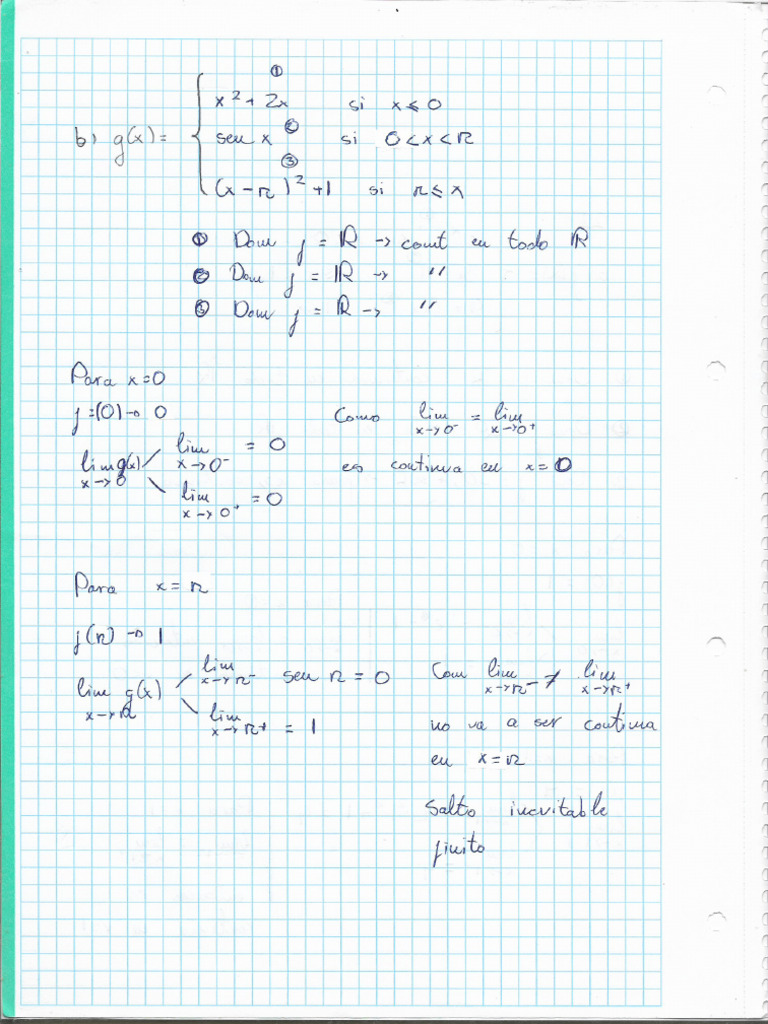 ①
x² + 2x si x ≤ 0
b) g(x) = { sen x ② si 0 < x < π
③
(x - π)² + 1 si π ≤ x
① Dom f = ℝ → cont en todo ℝ
② Dom f = ℝ → "
③ Dom f = ℝ → "
Para x = 0
f = (0) → 0
lim g(x) x→0
lim x→0⁻ = 0
lim x→0⁺ = 0
Como lim x→0⁻ = lim x→0⁺
es continua en x = 0
Para x = π
f(π) → 1
lim g(x) x→π
lim x→π⁻ sen π = 0
lim x→π⁺ = 1
Com lim x→π⁻ ≠ lim x→π⁺
no va a ser continua
en x = π
Salto inevitable
finito